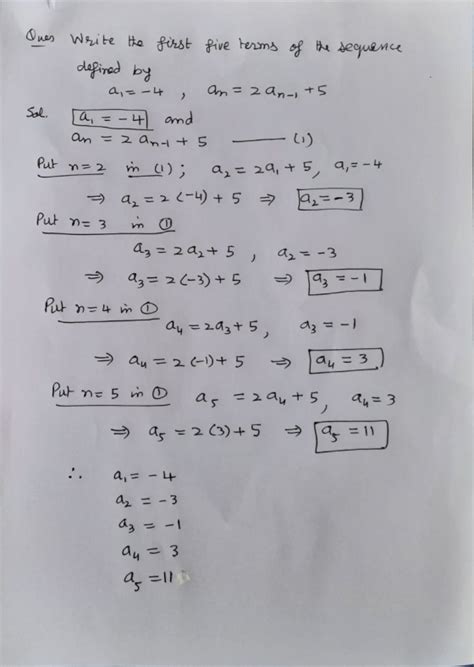 Ques Write the first five terms of the sequence
defined by
a₁ = -4 , aₙ = 2 aₙ₋₁ + 5
Sol. a₁ = -4 and
aₙ = 2 aₙ₋₁ + 5 —— (1)
Put n=2 in (1) ; a₂ = 2a₁ + 5, a₁ = -4
⇒ a₂ = 2(-4) + 5 ⇒ a₂ = -3
Put n = 3 in ①
a₃ = 2a₂ + 5 , a₂ = -3
⇒ a₃ = 2(-3) + 5 ⇒ a₃ = -1
Put n=4 in ①
a₄ = 2a₃ + 5, a₃ = -1
⇒ a₄ = 2(-1) + 5 ⇒ a₄ = 3
Put n= 5 in ① a₅ = 2a₄ + 5, a₄ = 3
⇒ a₅ = 2(3) + 5 ⇒ a₅ = 11
∴ a₁ = -4
a₂ = -3
a₃ = -1
a₄ = 3
a₅ = 11